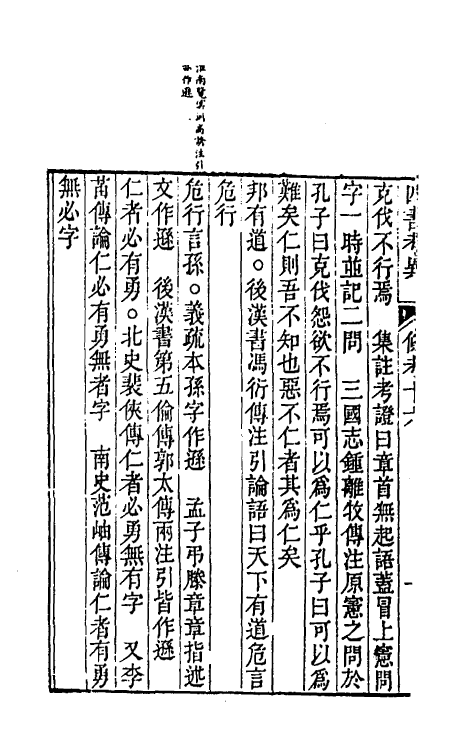 四書考異 條考十六
克伐不行焉 集註考證曰章首無起語蓋冒上憲問
字一時並記二問 三國志鍾離牧傳注原憲之問於
孔子曰克伐怨欲不行焉可以爲仁乎孔子曰可以爲
難矣仁則吾不知也惡不仁者其爲仁矣
邦有道○後漢書馮衍傳注引論語曰天下有道危言
危行
危行言孫○義疏本孫字作遜 孟子弔滕章章指述
文作遜 後漢書第五倫傳郭太傳兩注引皆作遜
仁者必有勇○北史裴俠傳仁者必勇無有字 又李
苗傳論仁必有勇無者字 南史范岫傳論仁者有勇
無必字
淮南覽冥訓高誘注引
亦作遜